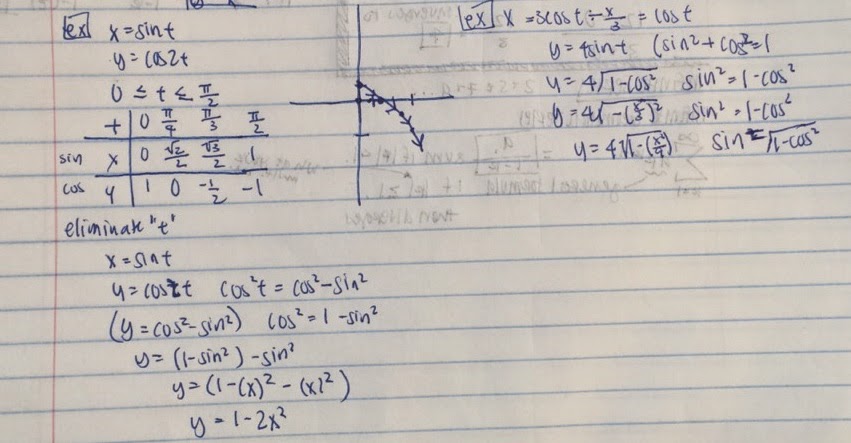 ex x = sint
y = cos2t
0 ≤ t ≤ π/2
t 0 π/4 π/3 π/2
sin x 0 √2/2 √3/2 1
cos y 1 0 -1/2 -1
eliminate "t"
x = sint
y = cos2t cos²t = cos²-sin²
(y = cos²-sin²) cos² = 1-sin²
y = (1-sin²)-sin²
y = (1-(x)²-(x)²)
y = 1-2x²
ex x = 3cost ÷ x/3 = cost
y = 4sint (sin²+cos²=1
y = 4√1-cos² sin²=1-cos²
y = 4√-(x/3)² sin²=1-cos²
y = 4√1-(x²/9) sin = √1-cos²
general formula